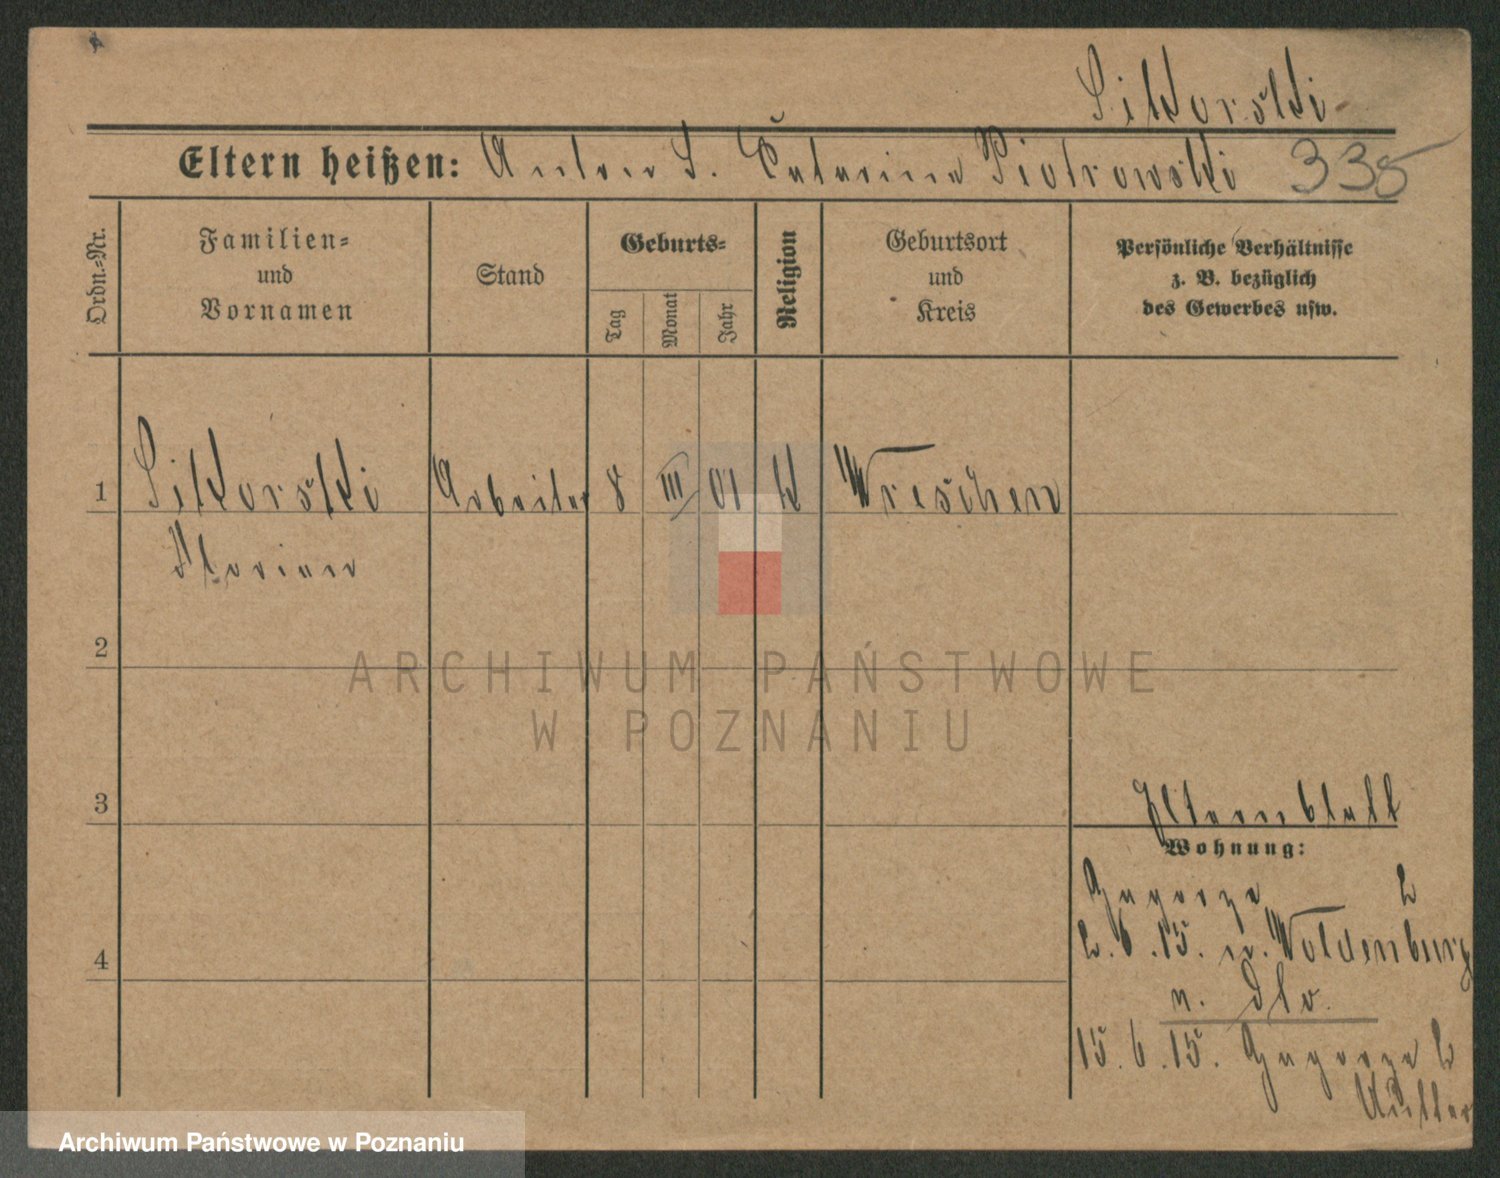 Sikorski
Eltern heißen: Anton S. Catarina Piotrowski 338
Ordn.-Nr.
Familien-
und
Vornamen
Stand
Geburts-
Tag
Monat
Jahr
Religion
Geburtsort
und
Kreis
Persönliche Verhältnisse
z. B. bezüglich
des Gewerbes usw.
1 Sikorski Arbeiter 8 III 01 k Wreschen
Florian
2
3
Elternblatt
Wohnung:
4
2.6.15. n. Woldenburg
n. dto.
15.6.15.
Mutter
ARCHIWUM PAŃSTWOWE
W POZNANIU
Archiwum Państwowe w Poznaniu